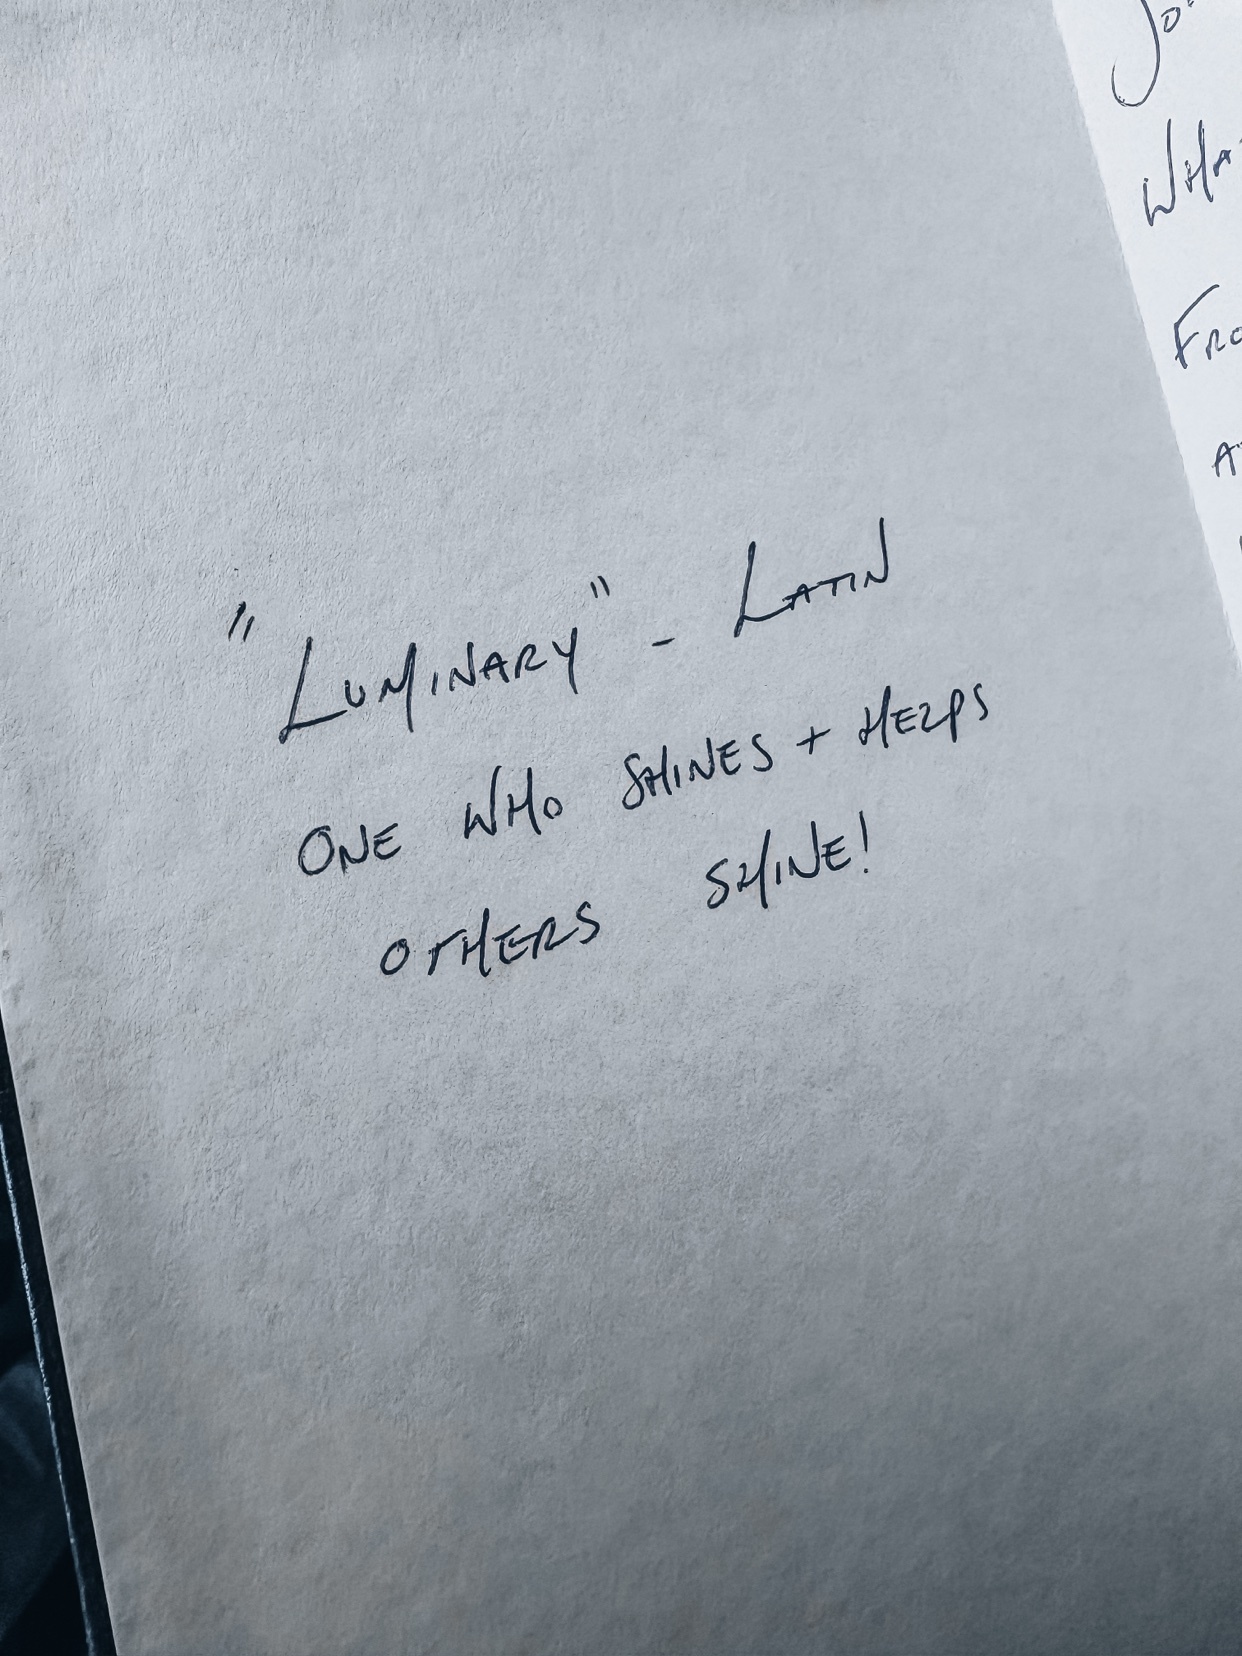 "Luminary" - Latin
One who shines + helps
others shine!